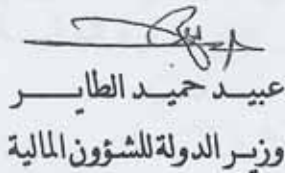 عبيد حميد الطاير
وزير الدولة للشؤون المالية